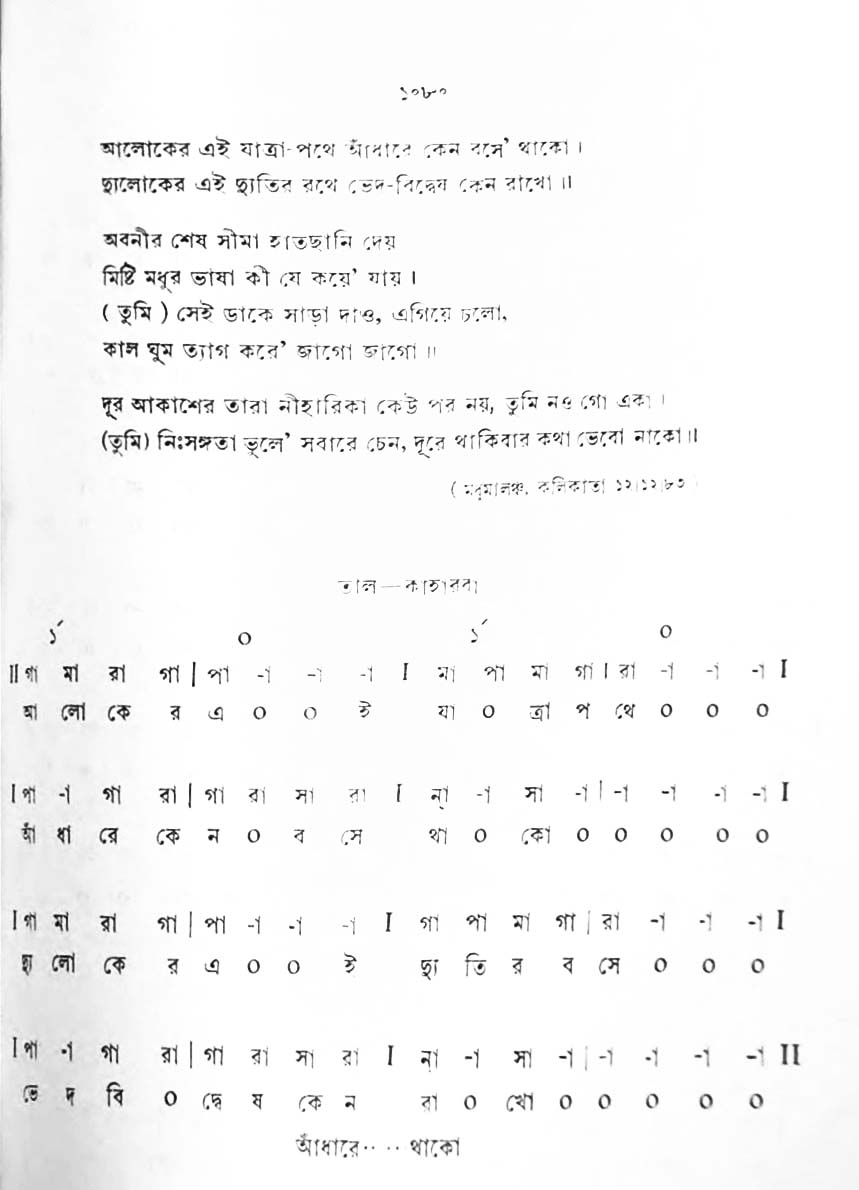 ১০৮০
আলোকের এই যাত্রা-পথে আঁধারে কেন বসে' থাকো ।
দ্যুলোকের এই দ্যুতির রথে ভেদ-বিদ্বেষ কেন রাখো ॥
অবনীর শেষ সীমা হাতছানি দেয়
মিষ্টি মধুর ভাষা কী যে কয়ে' যায় ।
( তুমি ) সেই ডাকে সাড়া দাও, এগিয়ে চলো,
কাল ঘুম ত্যাগ করে' জাগো জাগো ॥
দূর আকাশের তারা নীহারিকা কেউ পর নয়, তুমি নও গো একা ।
(তুমি) নিঃসঙ্গতা ভুলে' সবারে চেন, দূরে থাকিবার কথা ভেবো নাকো॥
( মধুমালঞ্চ, কলিকাতা ১২।১২।৮৩ )
তাল—কাহারবা
১´ ০ ১´ ০
II গা মা রা গা | পা -া -া -া I মা পা মা গা | রা -া -া -া I
আ লো কে র এ ০ ০ ই যা ০ ত্রা প থে ০ ০ ০
I পা -া গা রা | গা রা সা রা I না্ -া সা -া | -া -া -া -া I
আঁ ধা রে কে ন ০ ব সে থা ০ কো ০ ০ ০ ০ ০
I গা মা রা গা | পা -া -া -া I গা পা মা গা | রা -া -া -া I
দ্যু লো কে র এ ০ ০ ই দ্যু তি র ব সে ০ ০ ০
I পা -া গা রা | গা রা সা রা I না্ -া সা -া | -া -া -া -া II
ভে দ বি ০ দ্বে ষ কে ন রা ০ খো ০ ০ ০ ০ ০
আঁধারে·· ·· থাকো